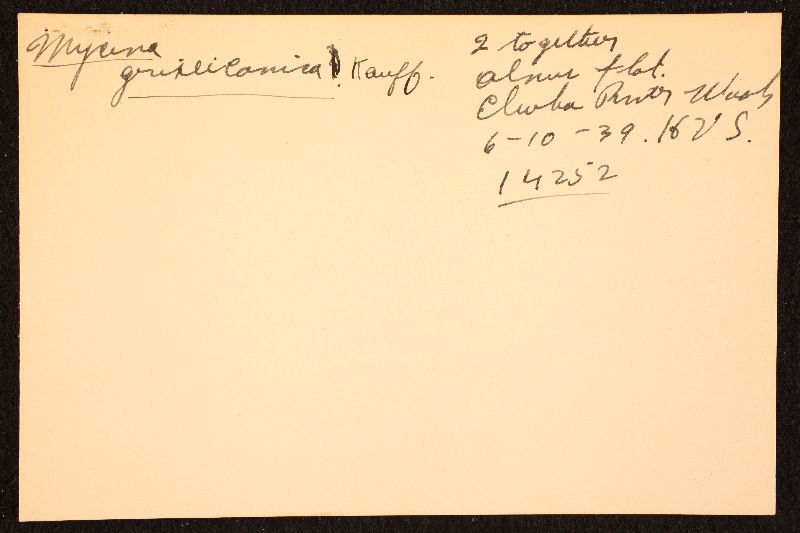 Mycena
griseiconica? Kauff.
2 together
alnus flat.
Elwha River Wash
6-10-39. H V S.
14252